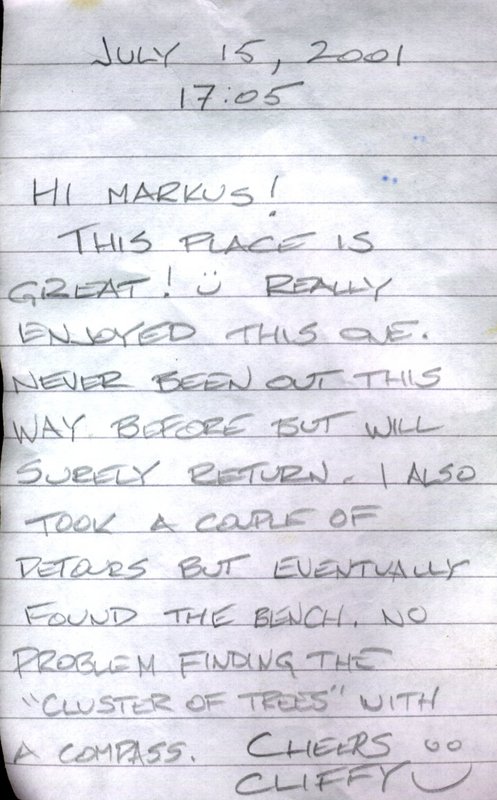 JULY 15, 2001
17:05
HI MARKUS!
THIS PLACE IS
GREAT! REALLY
ENJOYED THIS ONE.
NEVER BEEN OUT THIS
WAY BEFORE BUT WILL
SURELY RETURN. I ALSO
TOOK A COUPLE OF
DETOURS BUT EVENTUALLY
FOUND THE BENCH. NO
PROBLEM FINDING THE
"CLUSTER OF TREES" WITH
A COMPASS. CHEERS
CLIFFY